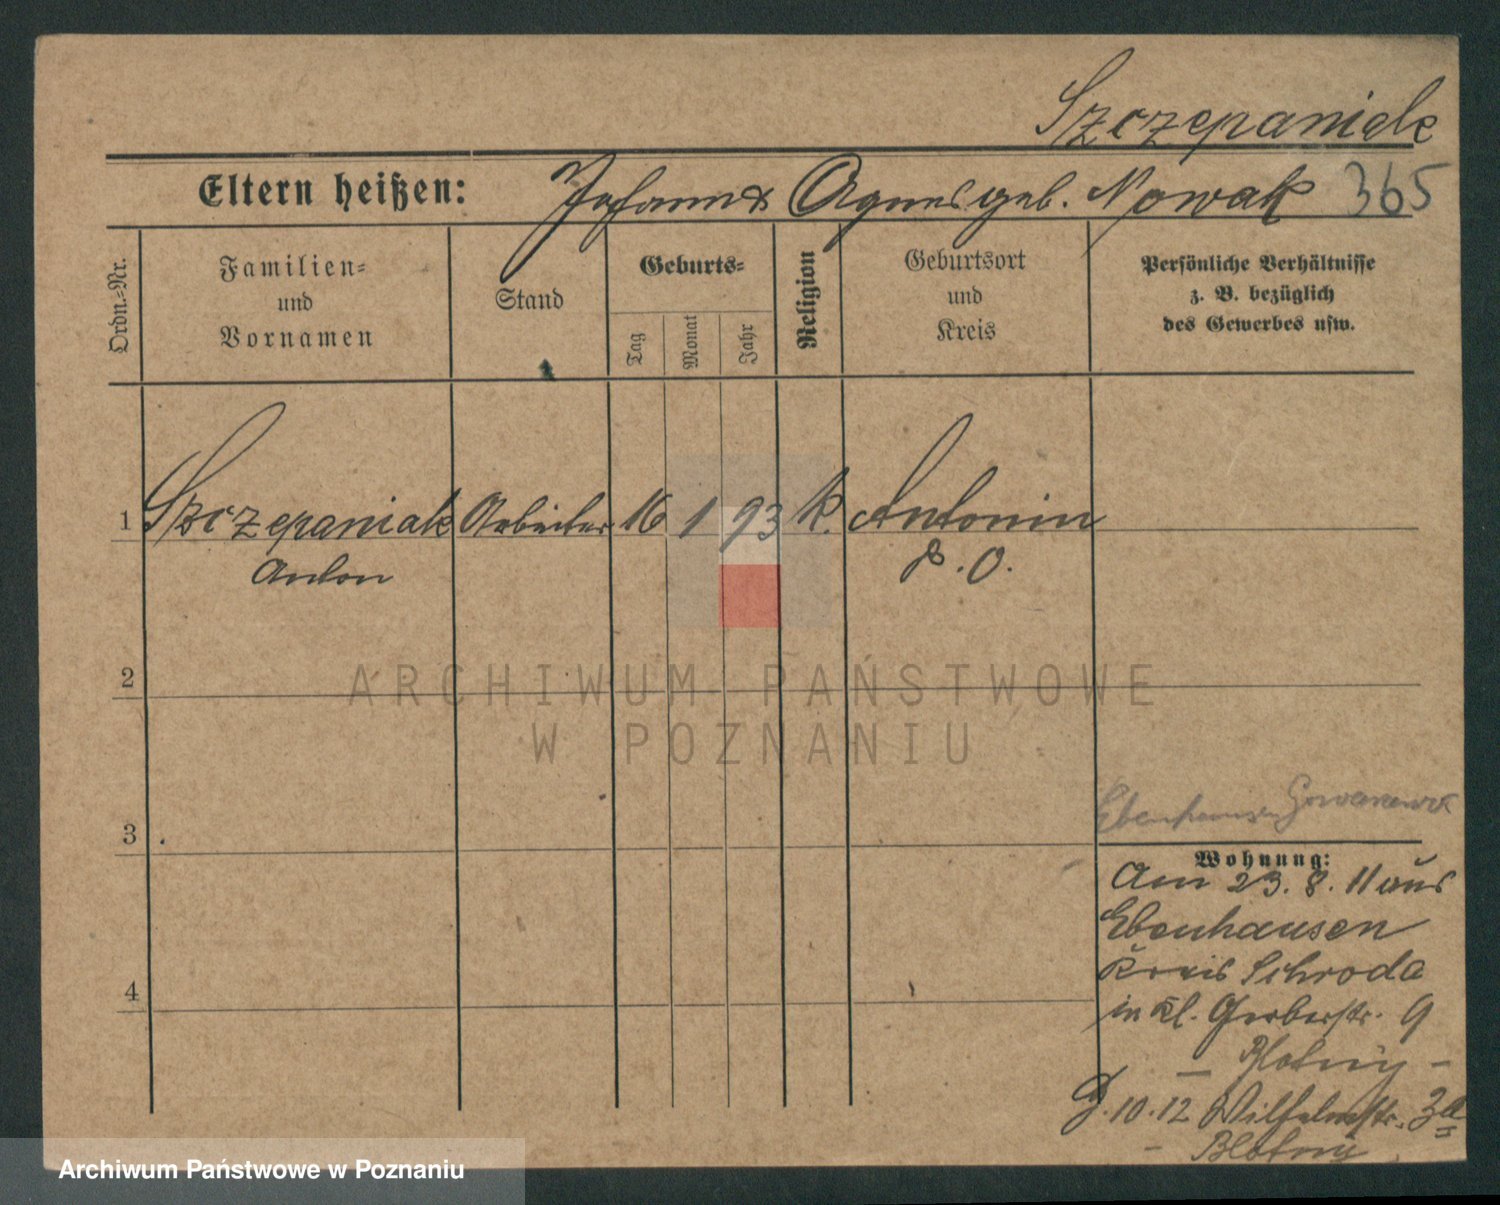 Szczepaniak
Eltern heißen: Johann & Agnes geb. Nowak 365
Ordn.-Nr.
Familien-
und
Vornamen
Stand
Geburts-
Tag
Monat
Jahr
Religion
Geburtsort
und
Kreis
Persönliche Verhältnisse
z. B. bezüglich
des Gewerbes usw.
1 Szczepaniak Arbeiter 16 1 93 k. Antonin
Anton P. O.
2
ARCHIWUM PAŃSTWOWE
W POZNANIU
3
Ebenhausen
Wohnung:
Am 23. 8. 11 aus
Ebenhausen
Kreis Schroda
in Kl. Gerberstr. 9
4
— Blotny —
10. 12 Wilhelmstr.
— Blotny
Archiwum Państwowe w Poznaniu